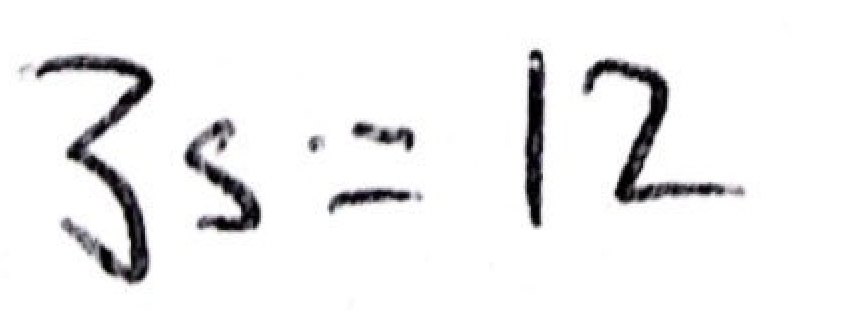 3s = 12